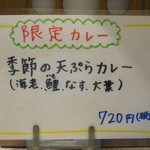 限定カレー
季節の天ぷらカレー
(海老、鱧、なす、大葉)
720円(税込)